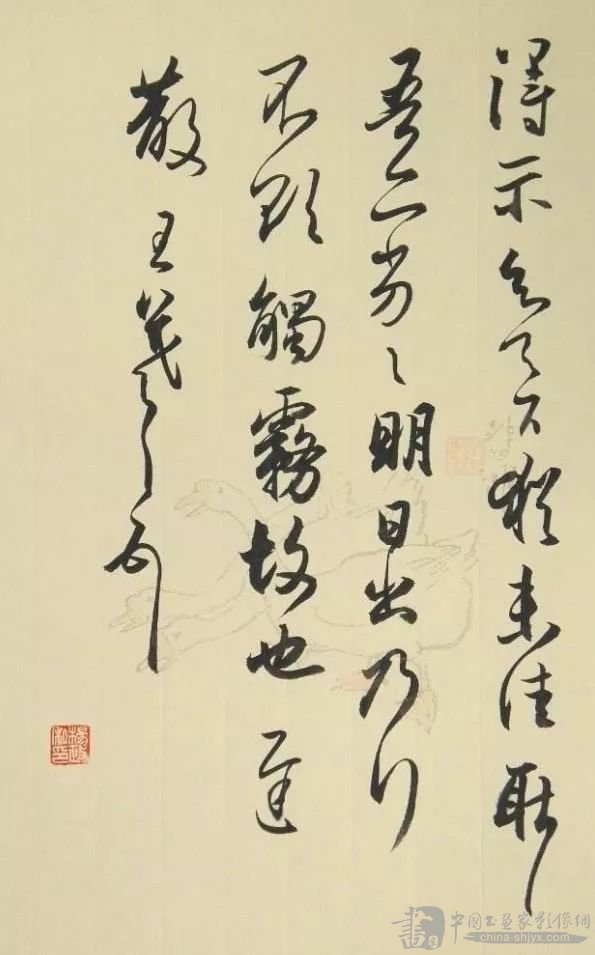 得示知足下猶未佳耿
吾亦劣劣明日出乃行
不欲觸霧故也遲
散王羲之頓
中国书画家影像網
china-shjyx.com